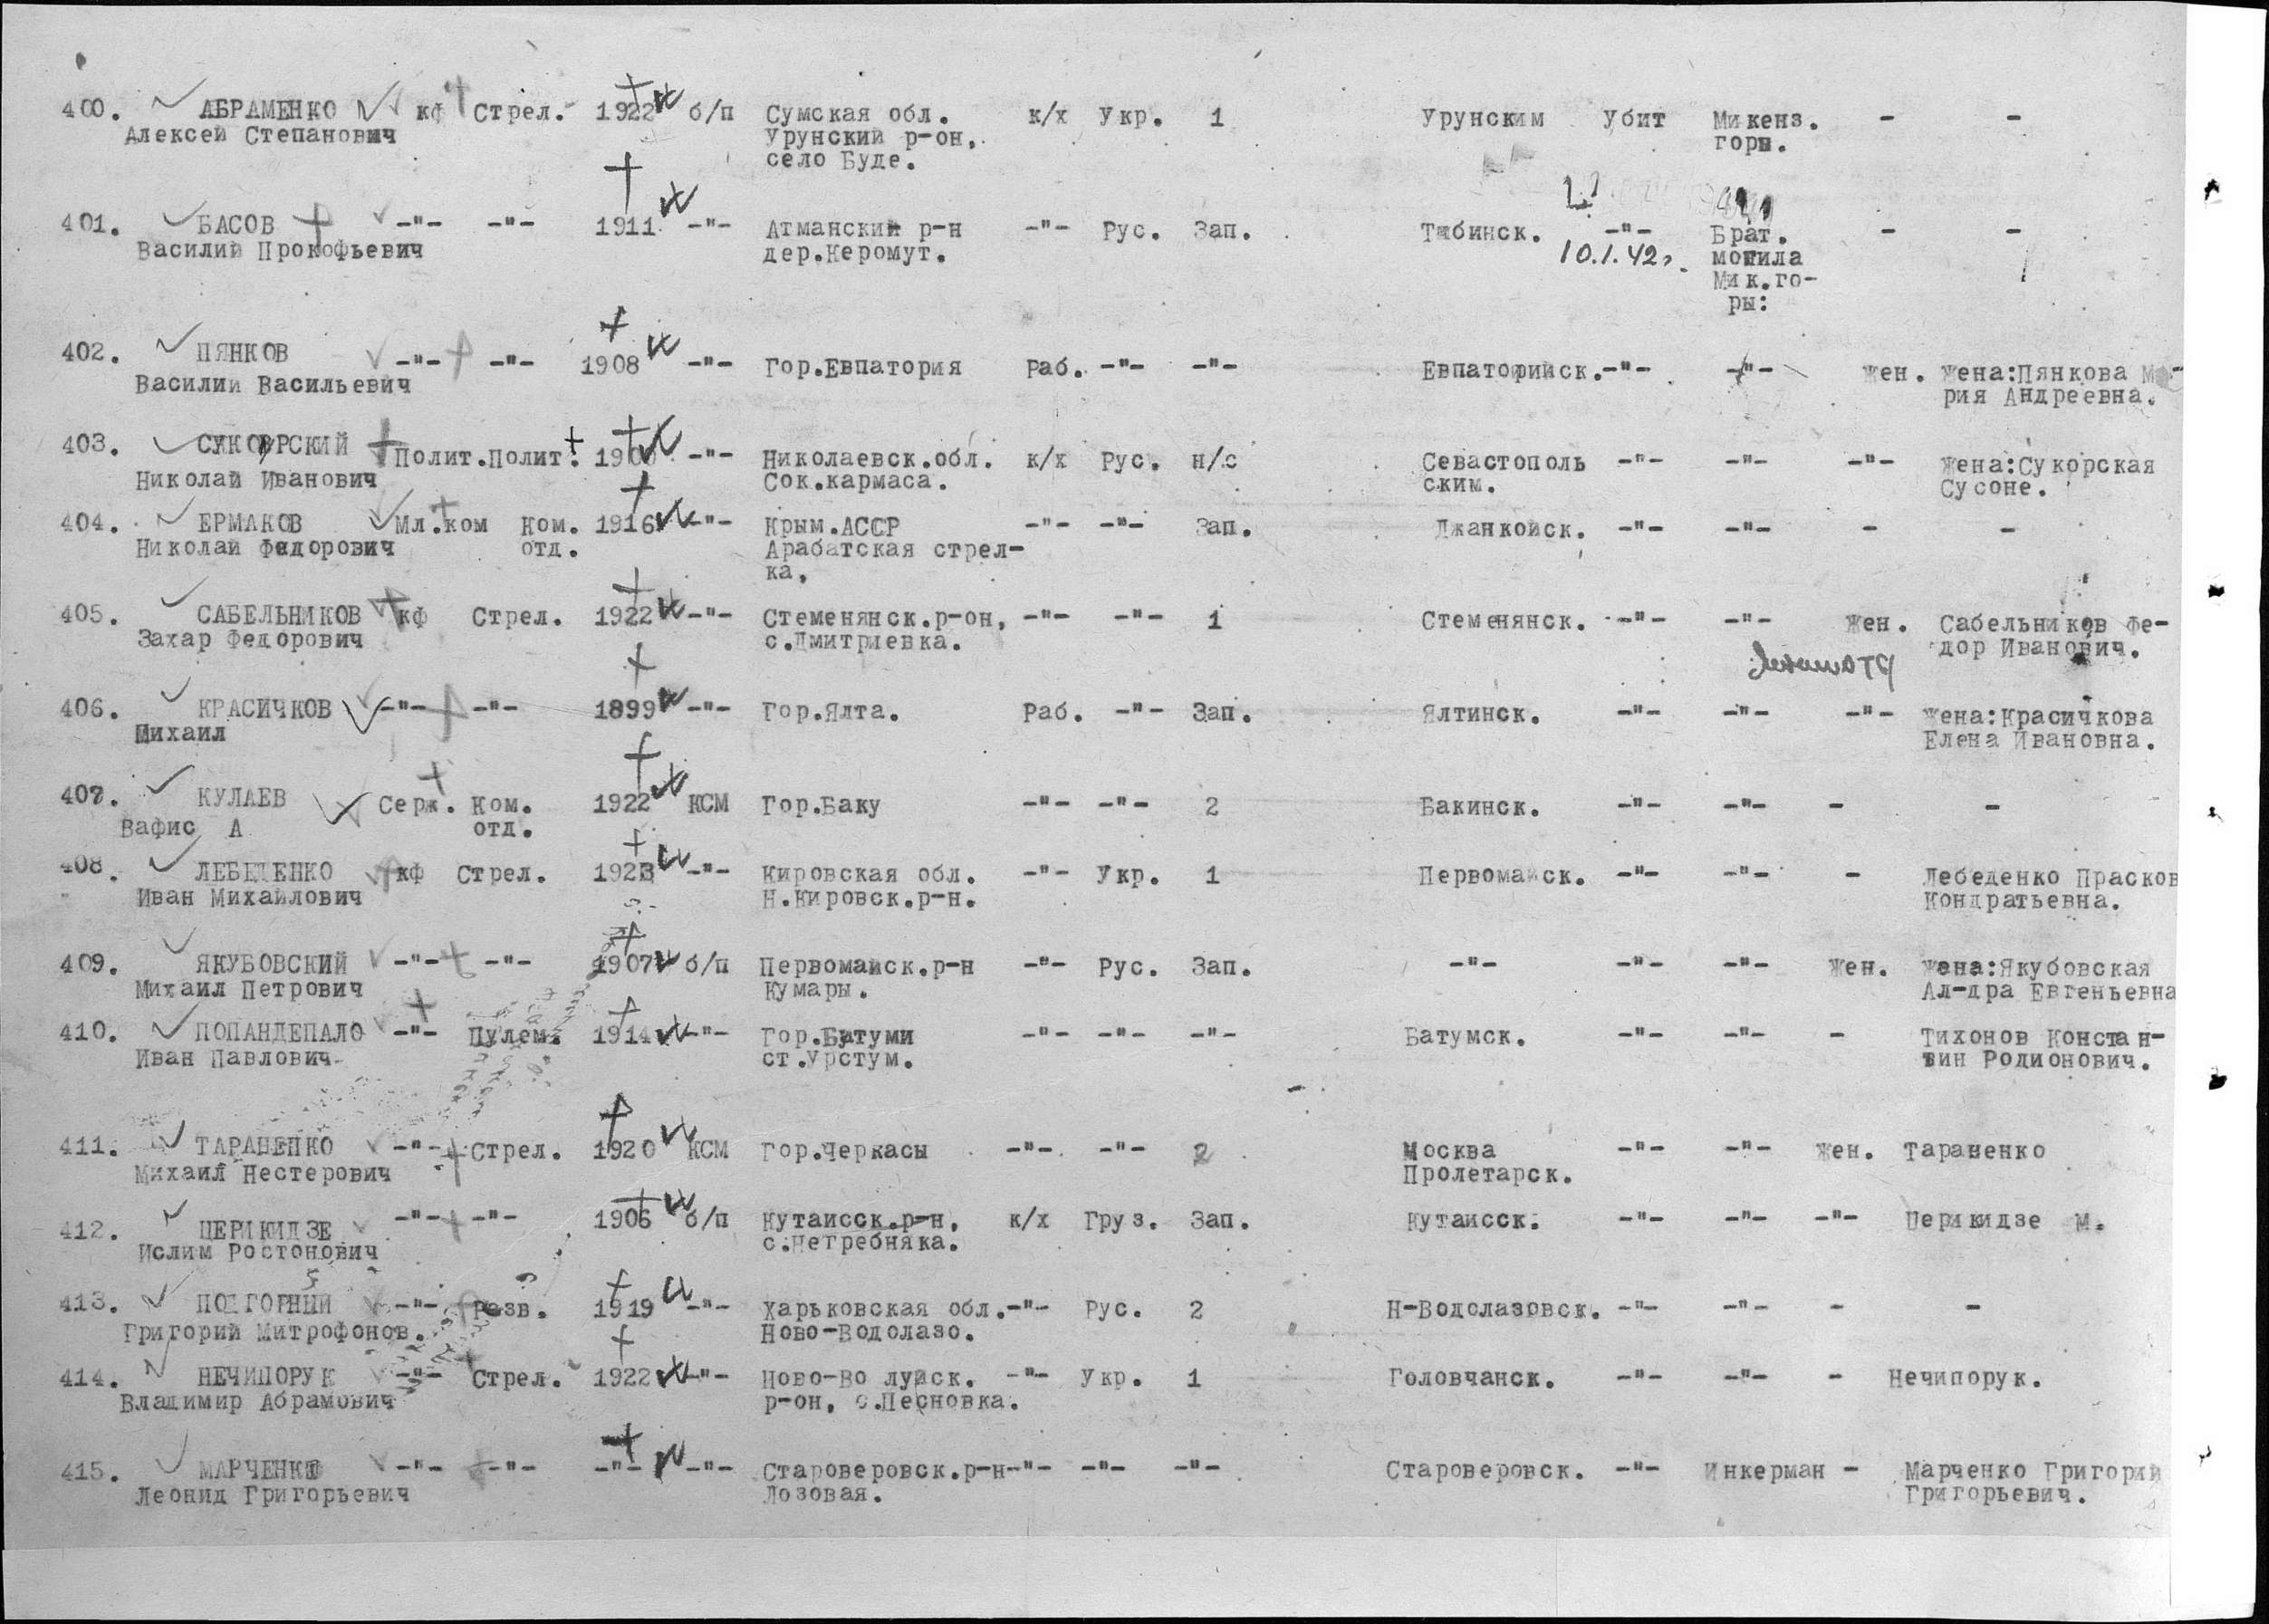 400. АБРАМЕНКО кф Стрел. 1922 б/п Сумская обл. к/х Укр. 1 Урунским Убит Микенз. - -
Алексей Степанович Урунский р-он, горы.
село Буде.
401. БАСОВ -"- -"- 1911 -"- Атманский р-н -"- Рус. Зап. Тябинск. -"- Брат. - -
Василий Прокофьевич дер.Керомут. 10.1.42г. могила
Мик.го-
ры:
402. ПЯНКОВ -"- -"- 1908 -"- Гор.Евпатория Раб. -"- -"- Евпаторийск. -"- -"- Жен. Жена:Пянкова М
Василий Васильевич рия Андреевна.
403. Полит. Полит. -"- Николаевск.обл. к/х Рус. н/с Севастополь -"- -"- -"- Жена:Сукорская
Николай Иванович Сок.кармаса. ским. Сусоне.
404. ЕРМАКОВ Мл.ком Ком. 1916 -"- Крым.АССР -"- -"- Зап. Джанкойск. -"- -"- - -
Николай Федорович отд. Арабатская стрел-
ка,
405. САБЕЛЬНИКОВ кф Стрел. 1922 -"- Стеменянск.р-он, -"- -"- 1 Стеменянск. -"- -"- Жен. Сабельников Фе-
Захар Федорович с.Дмитриевка. дор Иванович.
406. КРАСИЧКОВ -"- -"- 1899 -"- Гор.Ялта. Раб. -"- Зап. Ялтинск. -"- -"- -"- Жена:Красичкова
Михаил Елена Ивановна.
407. КУЛАЕВ Серж. Ком. 1922 КСМ Гор.Баку -"- -"- 2 Бакинск. -"- -"- - -
Вафис А отд.
408. ЛЕБЕДЕНКО кф Стрел. 1923 -"- Кировская обл. -"- Укр. 1 Первомайск. -"- -"- - Лебеденко Прасков
Иван Михайлович Н.Кировск.р-н. Кондратьевна.
409. ЯКУБОВСКИЙ -"- -"- 1907 б/п Первомайск.р-н -"- Рус. Зап. -"- -"- -"- Жен. Жена:Якубовская
Михаил Петрович Кумары. Ал-дра Евгеньевна
410. ПОПАНДЕПАЛО -"- Пулем. 1914 -"- Гор.Батуми -"- -"- -"- Батумск. -"- -"- - Тихонов Констан-
Иван Павлович. ст.Урстум. тин Родионович.
411. ТАРАНЕНКО -"- Стрел. 1920 КСМ Гор.Черкасы -"- -"- 2 Москва -"- -"- Жен. Тараненко
Михаил Нестерович Пролетарск.
412. ЦЕРИКИДЗЕ -"- -"- 1906 б/п Кутаисск.р-н, к/х Груз. Зап. Кутаисск. -"- -"- -"- Церикидзе М.
Ислим Ростонович с.Нетребняка.
413. ПОДГОРНЫЙ -"- Розв. 1919 -"- Харьковская обл. -"- Рус. 2 Н-Водолазовск. -"- -"- - -
Григорий Митрофонов. Ново-Водолазо.
414. НЕЧИПОРУК -"- Стрел. 1922 -"- Ново-Во луйск. -"- Укр. 1 Головчанск. -"- -"- - Нечипорук.
Владимир Абрамович р-он, с.Песновка.
415. МАРЧЕНКО -"- -"- -"- -"- Староверовск.р-н -"- -"- -"- Староверовск. -"- Инкерман - Марченко Григорий
Леонид Григорьевич Лозовая. Григорьевич.